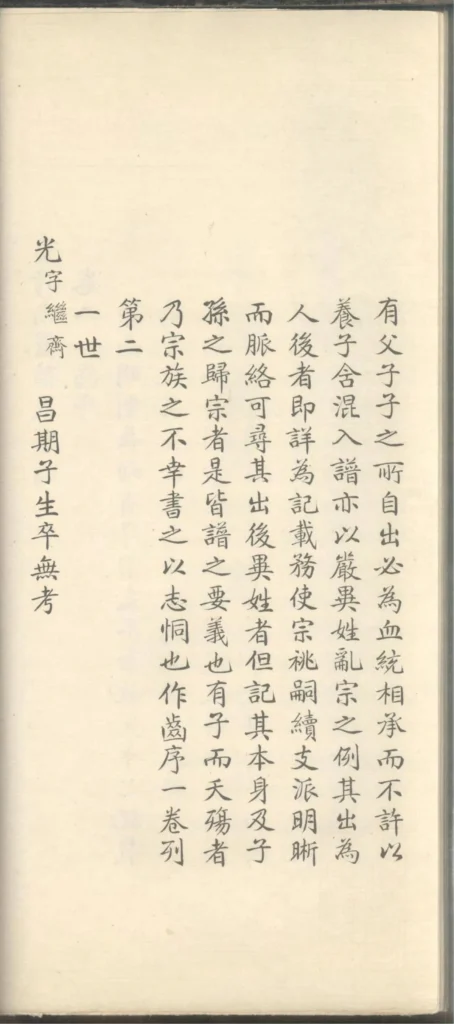 有父子子之所自出必為血統相承而不許以
養子含混入譜亦以嚴異姓亂宗之例其出為
人後者即詳為記載務使宗祧嗣續支派明晰
而脈絡可尋其出後異姓者但記其本身及子
孫之歸宗者是皆譜之要義也有子而夭殤者
乃宗族之不幸書之以志恫也作齒序一卷列
第二
一世
光字繼齊 昌期子生卒無考